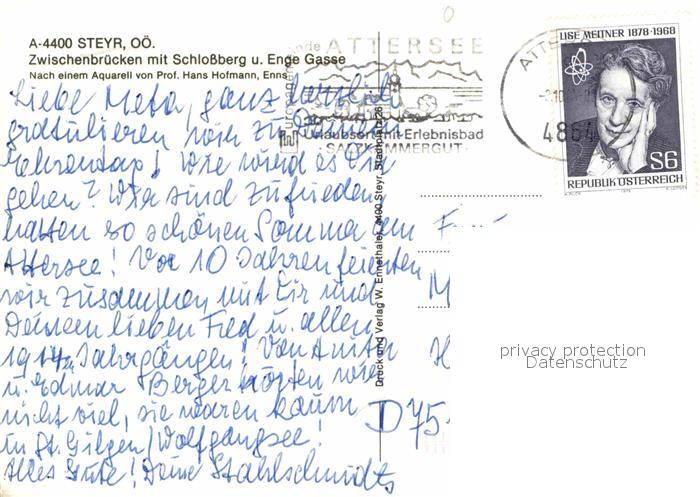 A-4400 STEYR, OÖ.
Zwischenbrücken mit Schloßberg u. Enge Gasse
Nach einem Aquarell von Prof. Hans Hofmann, Enns
Liebe Meta, ganz herzlich
gratulieren wir zu
Ehrentag! Wie wird es Dir
gehen? Wir sind zufrieden,
hatten so schönen Sommer am
Attersee! Vor 10 Jahren feierten
wir zusammen mit Dir und
Deinem lieben Fred u. allen
Jahrgängen! Von Anita
u. Edmar Berger hörten wir
nicht viel, sie waren kaum
in St. Gilgen/Wolfgangsee!
Alles Gute! Deine Stahlschmidts
ATTERSEE
Urlaubsort mit Erlebnisbad
SALZKAMMERGUT
4864
LISE MEITNER 1878-1968
S6
REPUBLIK ÖSTERREICH
Druck und Verlag W. Ennsthaler, 4400 Steyr, Stadtplatz 26
M
D 75
privacy protection
Datenschutz